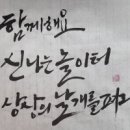 함께해요
신나는 놀이터
상상의 날개를 펴고